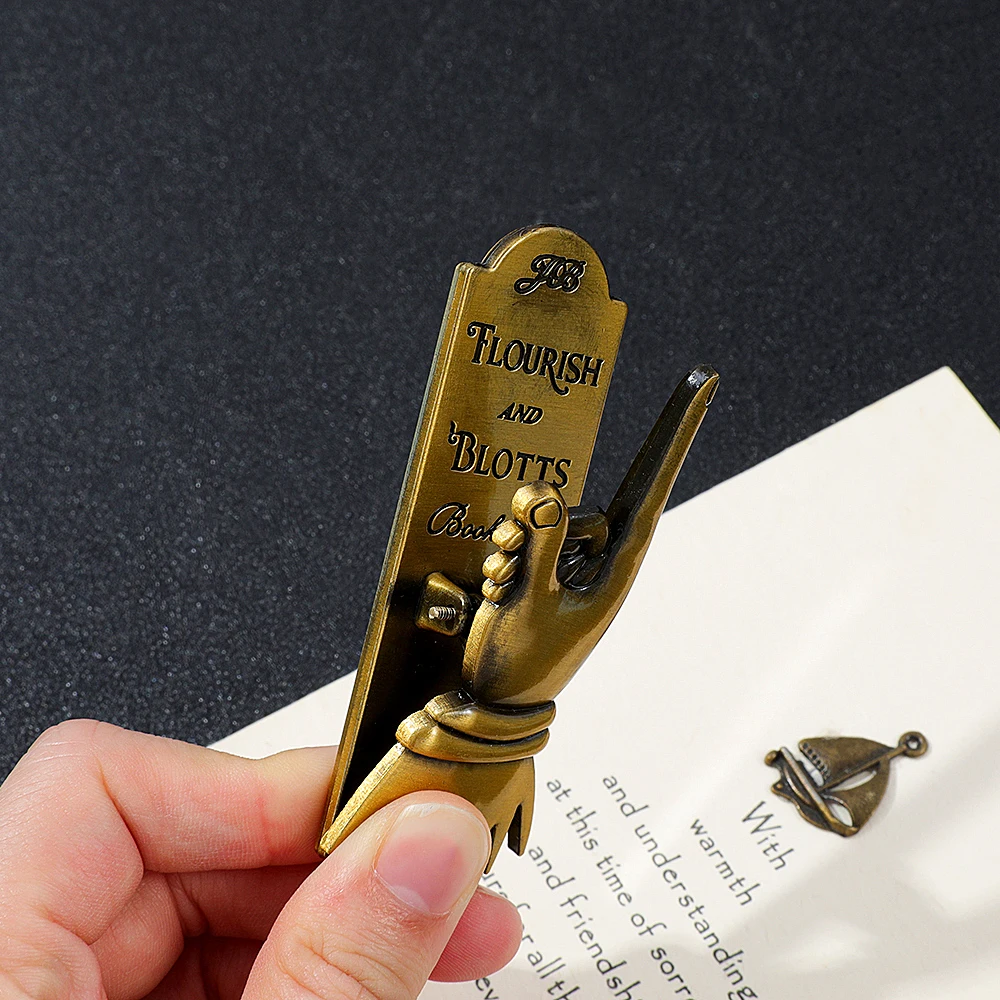 FB
FLOURISH
AND
BLOTTS
Book
With
warmth
and understanding
at this time of sorr
and friendsh
for all th